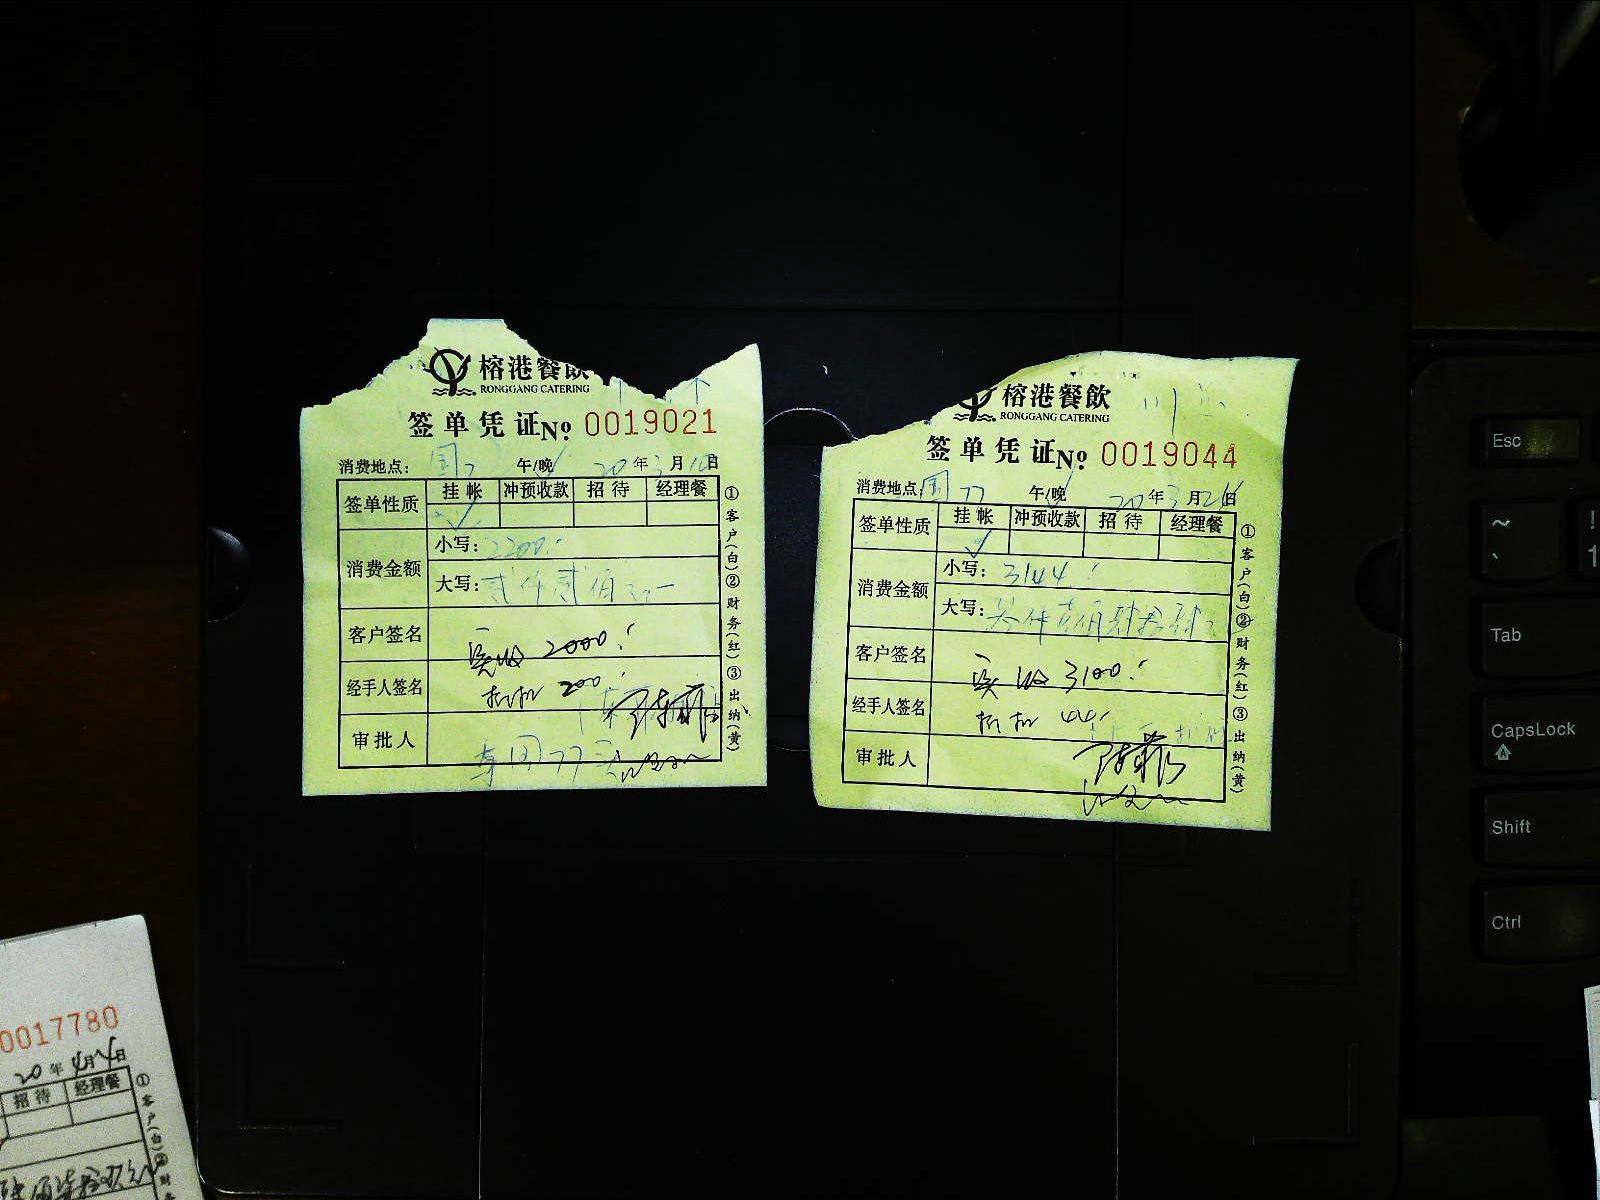 榕港餐飲
RONGGANG CATERING
签单凭证No 0019021
消费地点: 国77 午/晚 20年3月 日
签单性质 挂帐 冲预收款 招待 经理餐
消费金额 小写: 2200.-
大写: 贰仟贰佰元
客户签名 实收 2000.-
经手人签名 折扣 200.-
审批人
①客户(白)②财务(红)③出纳(黄)
榕港餐飲
RONGGANG CATERING
签单凭证No 0019044
消费地点: 国77 午/晚 20年3月 日
签单性质 挂帐 冲预收款 招待 经理餐
消费金额 小写: 3144.-
大写: 叁仟壹佰肆拾肆元
客户签名 实收 3100.-
经手人签名 折扣 44.-
审批人
①客户(白)②财务(红)③出纳(黄)
0017780
20年 月 日
招待 经理餐
①客户(白)②财
Esc
~
、
!
1
Tab
CapsLock
Shift
Ctrl